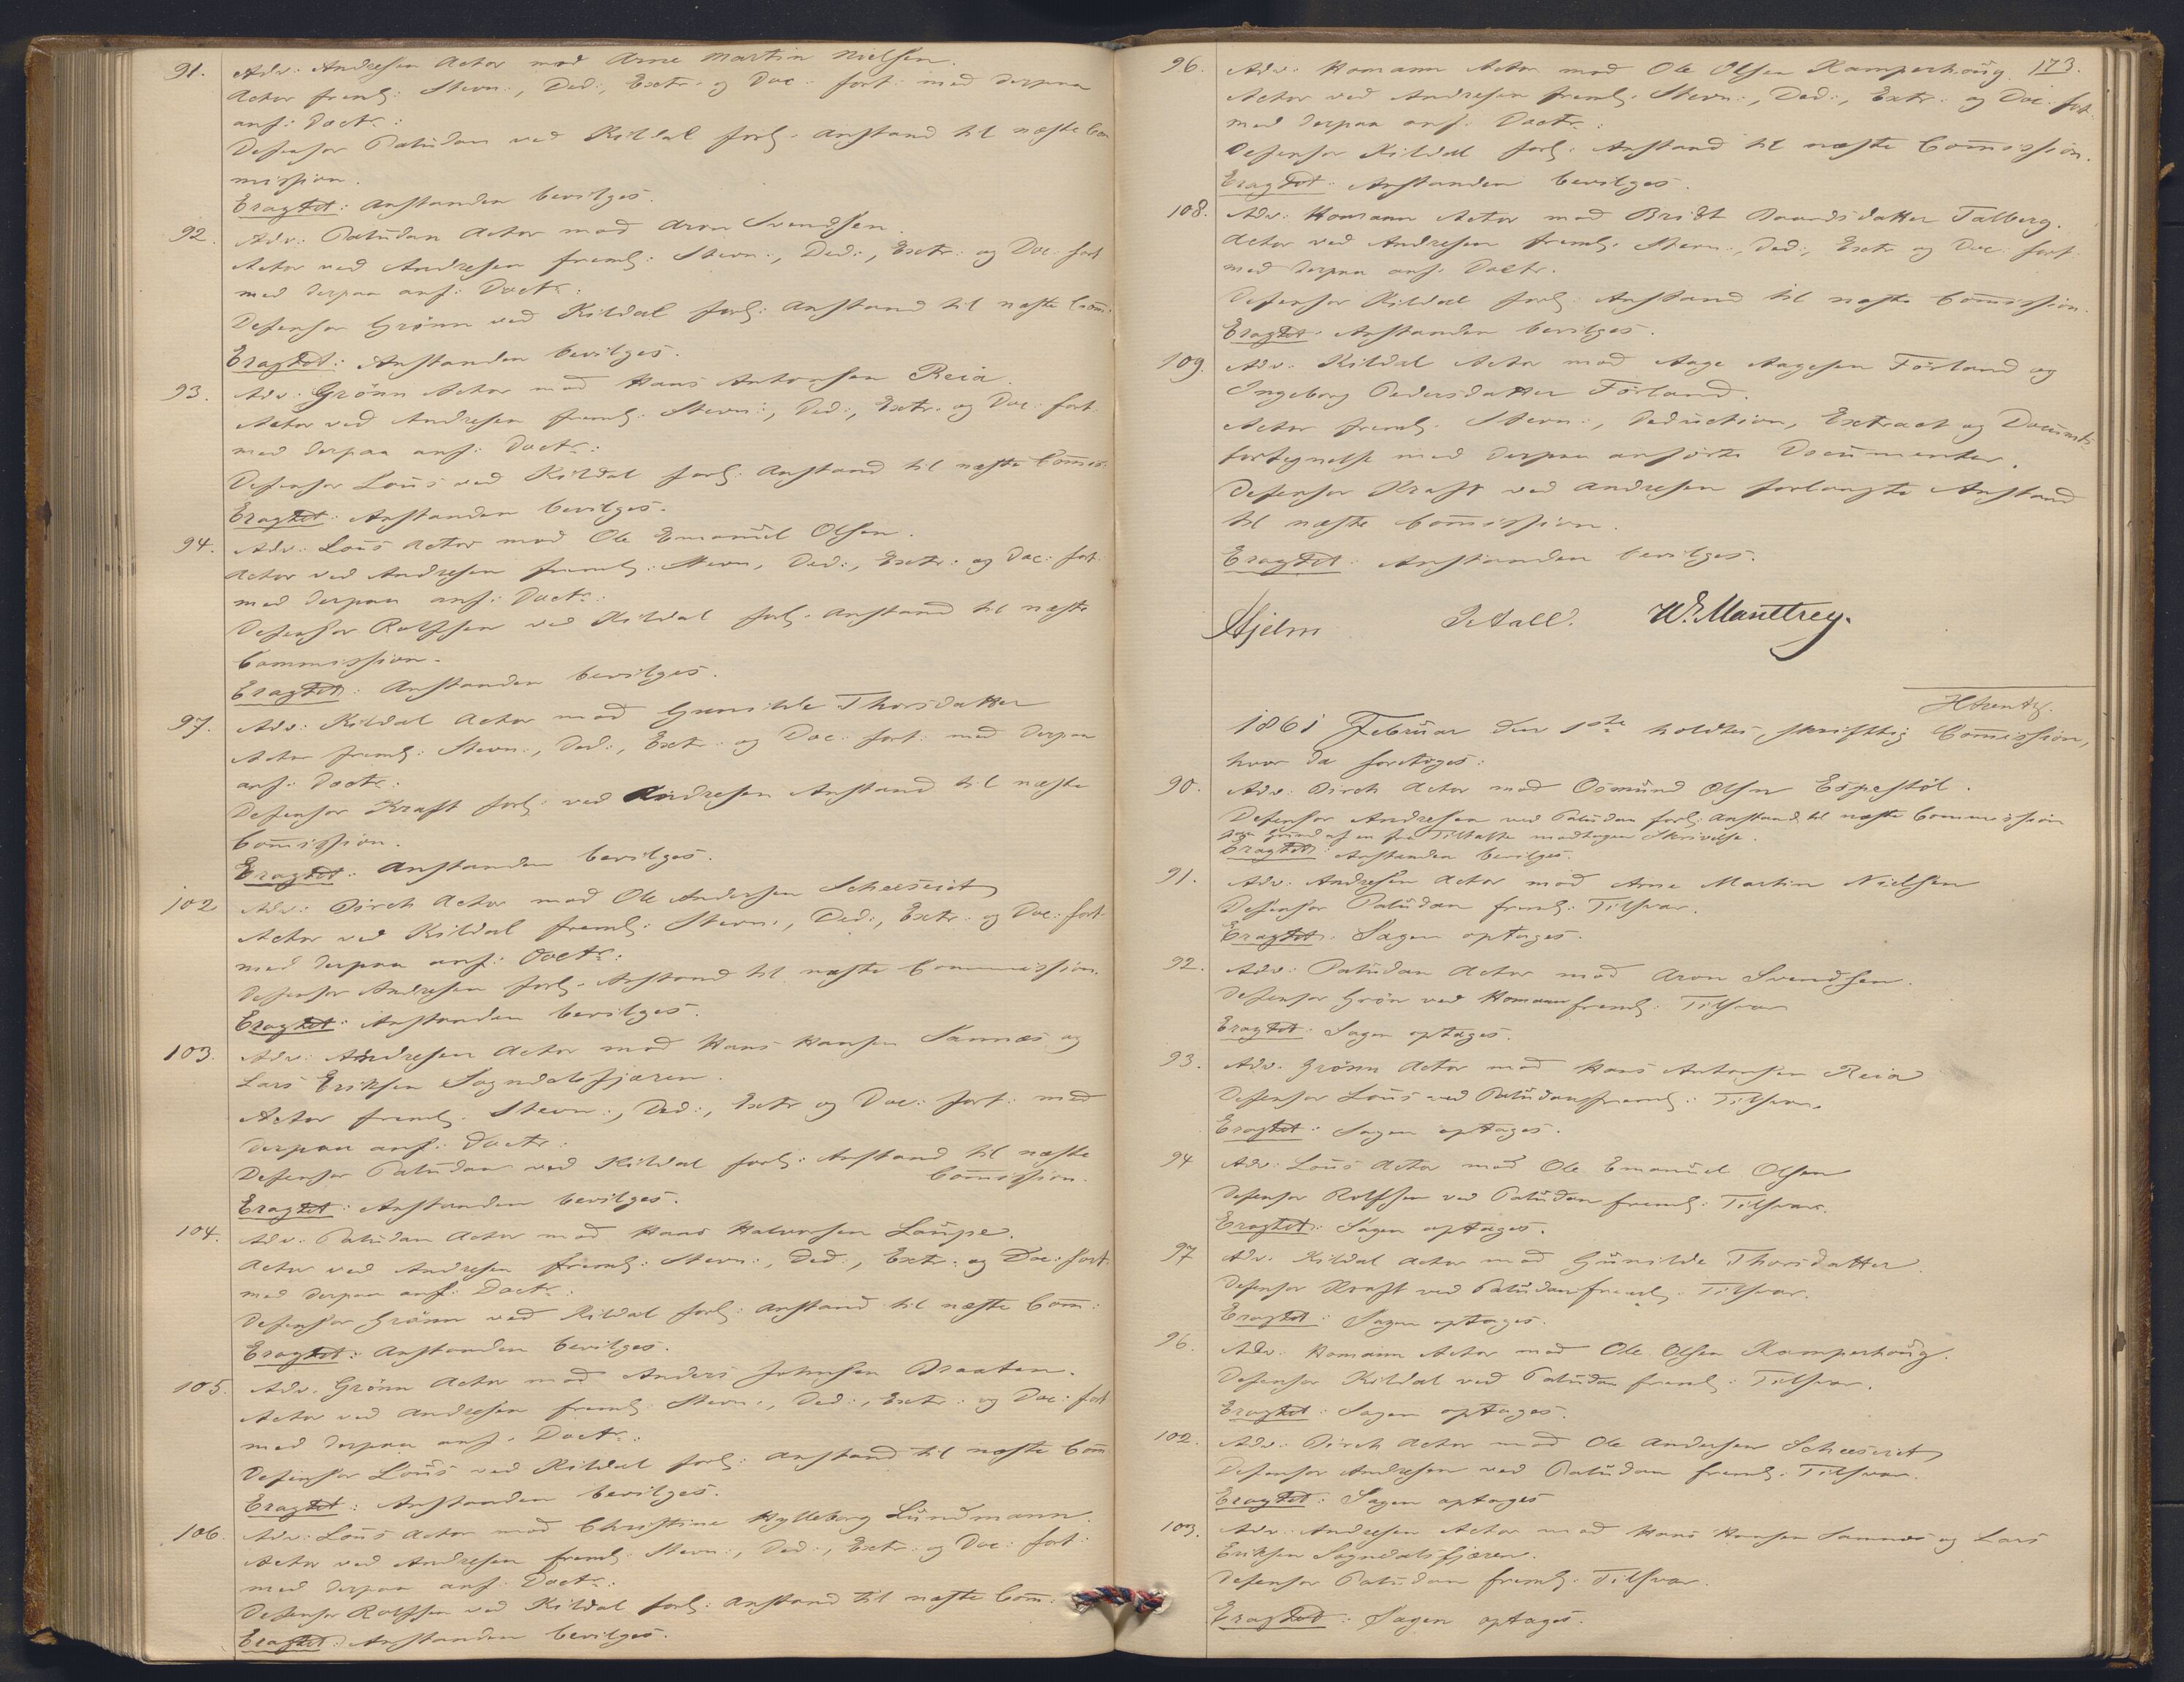 91. Adv: Andresen Actor mod Arne Martin Nielsen.
Actor freml: Stevn:, Ded:, Extr: og Doc: fort: med derpaa
anf: Doctr:
Defensor Paludan ved Kildal forl: Anstand til næste Com
mission.
Eragtet: Anstanden bevilges.
92. Adv: Paludan Actor mod Aron Svendsen.
Actor ved Andresen freml: Stevn:, Ded:, Extr: og Doc: fort
med derpaa anf: Doctr:
Defensor Grönn ved Kildal forl: Anstand til næste Com̄:
Eragtet: Anstanden bevilges.
93. Adv: Grönn Actor mod Hans Antonsen Reia.
Actor ved Andresen freml: Stevn:, Ded:, Extr: og Doc: fort.
med derpaa anf: Doctr:
Defensor Lous ved Kildal forl: Anstand til næste Com̄is:
Eragtet: Anstanden bevilges.
94. Adv: Lous Actor mod Ole Emanuel Olsen.
Actor ved Andresen freml: Stevn, Ded:, Extr: og Doc: fort.
med derpaa anf: Doctr:
Defensor Rolfsen ved Kildal forl: Anstand til næste
Commission.
Eragtet: Anstanden bevilges.
97. Adv: Kildal Actor mod Gunilde Thorsdatter
Actor freml: Stevn:, Ded:, Extr: og Doc: fort: med derpaa
anf: Doctr:
Defensor Kraft forl: ved Andresen Anstand til næste
Com̄ission.
Eragtet: Anstanden bevilges.
102 Adv: Birch Actor mod Ole Andersen
Actor ved Kildal freml: Stevn:, Ded:, Extr: og Doc: fort.
med derpaa anf: Doctr:
Defensor Andresen forl: Anstand til næste Commission.
Eragtet: Anstanden bevilges.
103. Adv: Andresen Actor mod Hans Hansen Sannæs og
Lars Eriksen Sogndalsfjæren.
Actor freml: Stevn:, Ded:, Extr og Doc: fort: med
derpaa anf: Doctr:
Defensor Paludan ved Kildal forl: Anstand til næste
Com̄ission.
Eragtet: Anstanden bevilges.
104. Adv: Paludan Actor mod Hans Halvorsen Laupe.
Actor ved Andresen freml: Stevn:, Ded:, Extr: og Doc: fort.
med derpaa anf: Doctr:
Defensor Grönn ved Kildal forl: Anstand til næste Com̄:
Eragtet: Anstanden bevilges.
105. Adv: Grönn Actor mod Anders Johnsen Braaten.
Actor ved Andresen freml: Stevn:, Ded:, Extr: og Doc: fort
med derpaa anf: Doctr:
Defensor Lous ved Kildal forl: Anstand til næste Com̄
Eragtet: Anstanden bevilges.
106. Adv: Lous Actor mod Christine Hylleborg Lundmann.
Actor ved Andresen freml: Stevn:, Ded:, Extr: og Doc: fort:
med derpaa anf: Doctr:
Defensor Rolfsen ved Kildal forl: Anstand til næste Com̄:
Eragtet: Anstanden bevilges.
173.
96. Adv: Homann Actor mod Ole Olsen Kamperhoug.
Actor ved Andresen freml: Stevn:, Ded:, Extr: og Doc: fort.
med derpaa anf: Doctr:
Defensor Kildal forl: Anstand til næste Com̄ission.
Eragtet: Anstanden bevilges.
108. Adv: Homann Actor mod Bridt Baardsdatter Talberg.
Actor ved Andresen freml: Stevn:, Ded:, Extr: og Doc: fort:
med derpaa anf: Doctr.
Defensor Kildal forl: Anstand til næste Com̄ission.
Eragtet: Anstanden bevilges.
109. Adv: Kildal Actor mod Aage Aagesen Förland og
Ingeborg Pedersdatter Förland.
Actor freml: Stevn:, Deduction, Extract og Documt:
fortegnelse med derpaa anförte Documenter.
Defensor Kraft ved Andresen forlangte Anstand
til næste Com̄ission.
Eragtet: Anstanden bevilges.
Hjelm
1861 Februar den 1ste holdtes skriftlig Com̄ission,
hvor da foretoges:
90. Adv: Birch Actor mod Osmund Olsen Espestöl.
Defensor Andresen ved Paludan forl: Anstand til næste Commission
paa Grund af en fra Tiltalte modtagen Skrivelse.
Eragtet: Anstanden bevilges.
91. Adv: Andresen Actor mod Arne Martin Nielsen
Defensor Paludan freml: Tilsvar.
Eragtet: Sagen optages.
92. Adv: Paludan Actor mod Aron Svendsen.
Defensor Grön ved Homann freml: Tilsvar
Eragtet: Sagen optages.
93. Adv: Grönn Actor mod Hans Antonsen Reia
Defensor Lous ved Paludan freml: Tilsvar.
Eragtet: Sagen optages.
94 Adv: Lous Actor mod Ole Emanuel Olsen
Defensor Rolfsen ved Paludan freml: Tilsvar.
Eragtet: Sagen optages.
97 Adv: Kildal Actor mod Gunilde Thorsdatter.
Defensor Kraft ved Paludan freml: Tilsvar.
Eragtet: Sagen optages.
96. Adv: Homann Actor mod Ole Olsen Kamperhoug.
Defensor Kildal ved Paludan freml: Tilsvar.
Eragtet: Sagen optages.
102. Adv: Birch Actor mod Ole Andersen
Defensor Andresen ved Paludan freml: Tilsvar.
Eragtet: Sagen optages
103. Adv: Andresen Actor mod Hans Hansen Sannæs og Lars
Eriksen Sogndalsfjæren.
Defensor Paludan freml: Tilsvar.
Eragtet: Sagen optages.